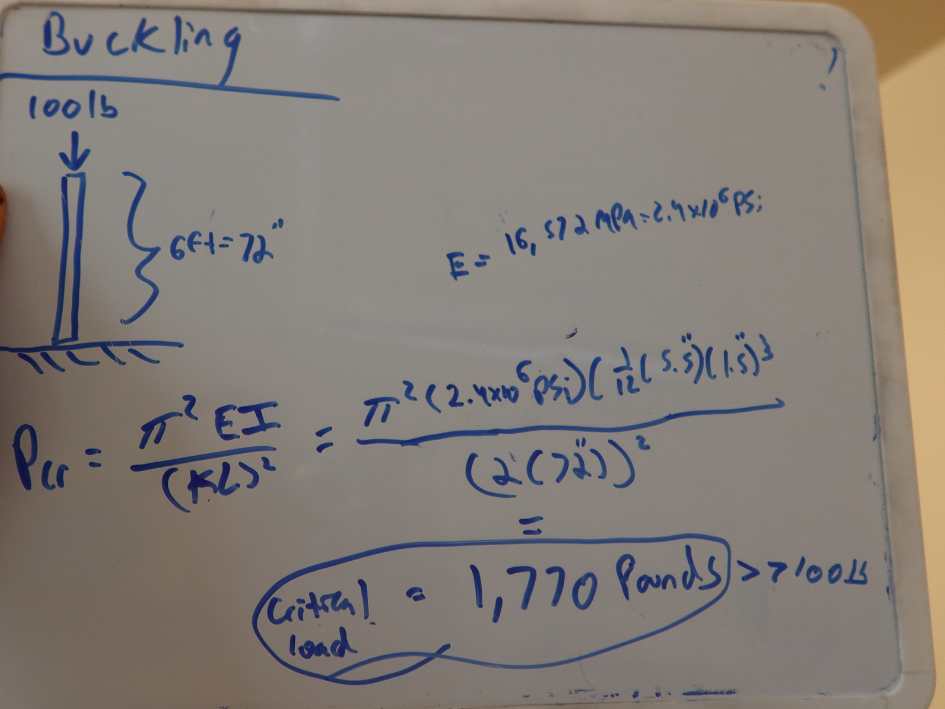 Buckling
100lb
6ft=72"
E = 16,572 MPa=2.4x10⁶ PSi
Pcr = π² EI / (KL)² = π² (2.4x10⁶ PSi)(1/12(5.5")(1.5")³ / (2(72"))²
=
Critical load = 1,770 Pounds >>100lb